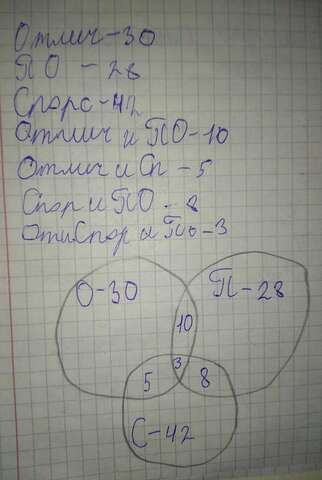 Отлич-30
ПО - 28
Спорс-42
Отлич и ПО-10
Отлич и Сп - 5
Спор и ПО - 8
Оти Спор и По-3
О-30
П-28
10
3
5
8
С-42